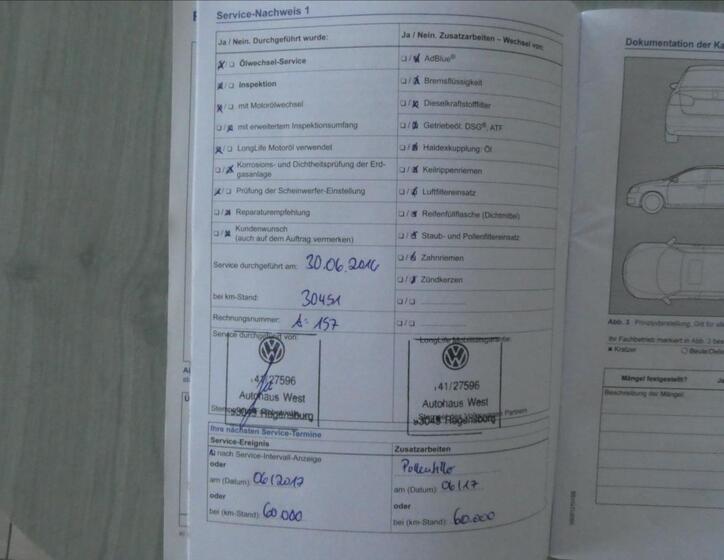 Service-Nachweis 1
Ja / Nein. Durchgeführt wurde:
Ölwechsel-Service
Inspektion
mit Motorölwechsel
mit erweitertem Inspektionsumfang
LongLife Motoröl verwendet
Korrosions- und Dichtheitsprüfung der Erd-
gasanlage
Prüfung der Scheinwerfer-Einstellung
Reparaturempfehlung
Kundenwunsch
(auch auf dem Auftrag vermerken)
Service durchgeführt am: 30.06.2016
bei km-Stand: 30451
Rechnungsnummer: A- 157
Service durchgeführt von:
41/27596
Autohaus West
93049 Regensburg
Ja / Nein. Zusatzarbeiten – Wechsel von:
AdBlue®
Bremsflüssigkeit
Dieselkraftstofffilter
Getriebeöl: DSG®, ATF
Haldexkupplung: Öl
Keilrippenriemen
Luftfiltereinsatz
Reifenfüllflasche (Dichtmittel)
Staub- und Pollenfiltereinsatz
Zahnriemen
Zündkerzen
41/27596
Autohaus West
93049 Regensburg
Ihre nächsten Service-Termine
Service-Ereignis
nach Service-Intervall-Anzeige
oder
am (Datum): 06/2017
oder
bei (km-Stand): 60.000
Zusatzarbeiten
am (Datum): 06/17
oder
bei (km-Stand): 60.000
Dokumentation der Ka
Abb. 3
Ihr Fachbetrieb markiert in Abb. 3
Kratzer
Mängel festgestellt?
Beschreibung der Mängel: